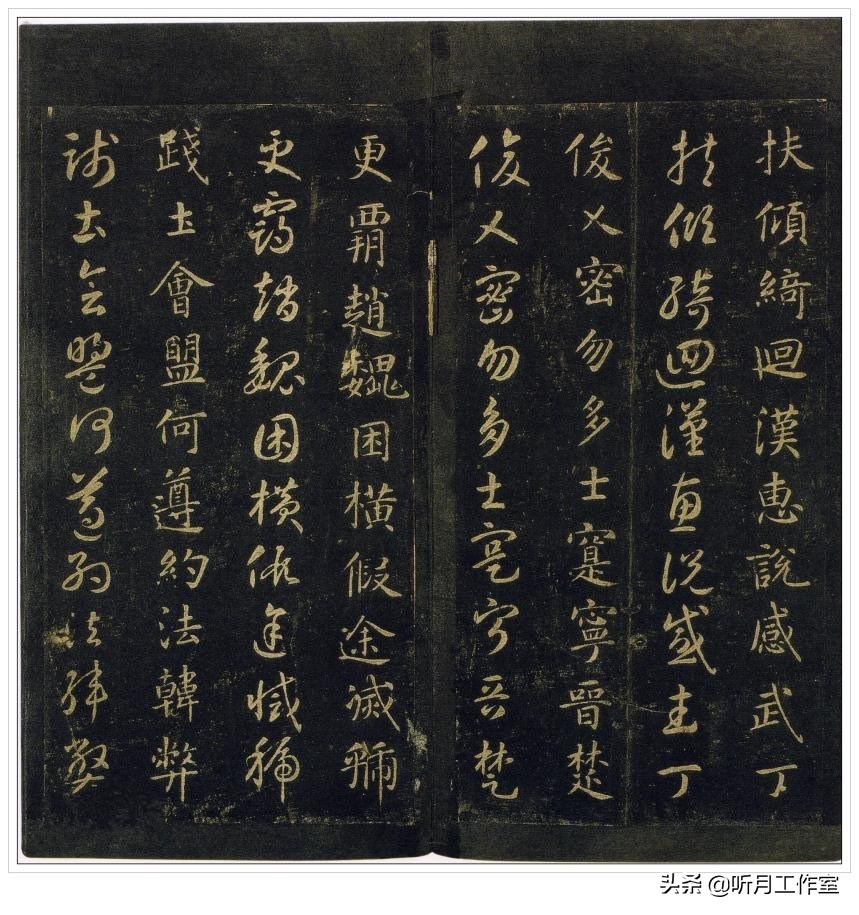 扶傾綺迴漢惠說感武丁
扶傾綺迴漢惠說感武丁
俊乂密勿多士寔寧晉楚
俊乂密勿多士寔寧晉楚
更覇趙魏困橫假途滅虢
更覇趙魏困橫假途滅虢
踐土會盟何遵約法韓弊
踐土會盟何遵約法韓弊
头条 @听月工作室